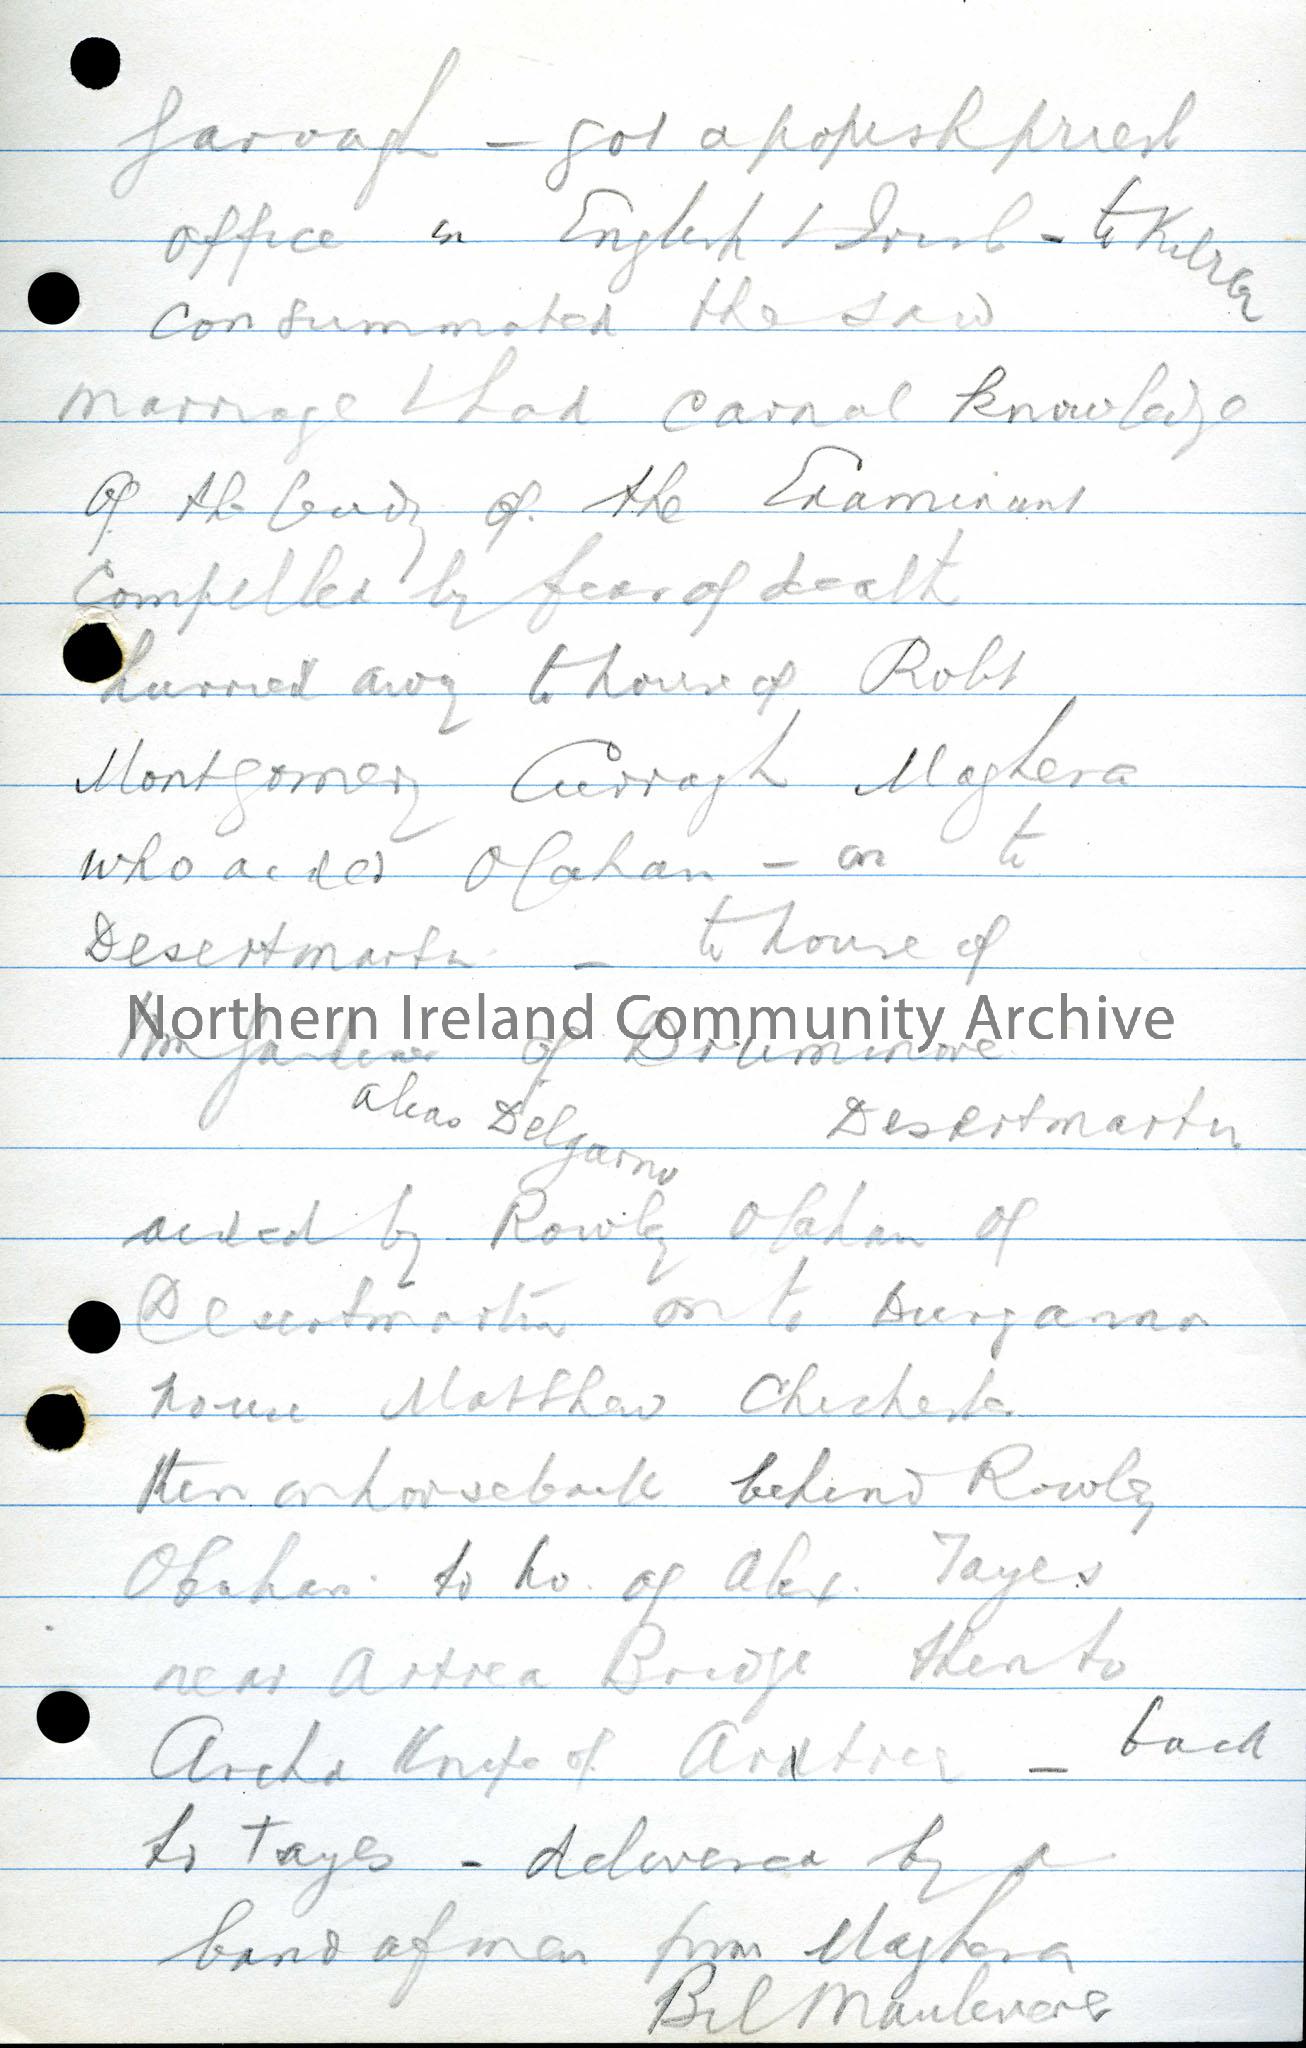 Garvagh - got a popish priest
office in English & Irish - to Kilrea
consummated the said
marriage & had carnal knowledge
of the body of the Examinant
compelled by fear of death
hurried away to house of Robt
Montgomery Curragh Maghera
who aided OCahan - on to
Desertmartin - to house of
Northern Ireland Community Archive
of Drummore
alias Delgarno Desertmartin
aided by Rowley OCahan of
Desertmartin on to Dungannon
house Matthew Chichester
then on horseback behind Rowley
OCahan to ho. of Alex. Tayes
near Artrea Bridge then to
of Ardtrea - back
to Tayes - delivered by a
band of men from Maghera
Bel Mauleverer